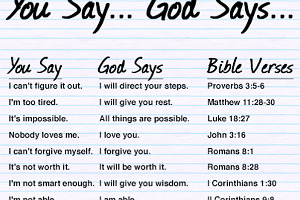 You Say... God Says...
You Say God Says Bible Verses
I can't figure it out. I will direct your steps. Proverbs 3:5-6
I'm too tired. I will give you rest. Matthew 11:28-30
It's impossible. All things are possible. Luke 18:27
Nobody loves me. I love you. John 3:16
I can't forgive myself. I forgive you. Romans 8:1
It's not worth it. It will be worth it. Romans 8:28
I'm not smart enough. I will give you wisdom. I Corinthians 1:30
I'm not able. I am able. II Corinthians 9:8